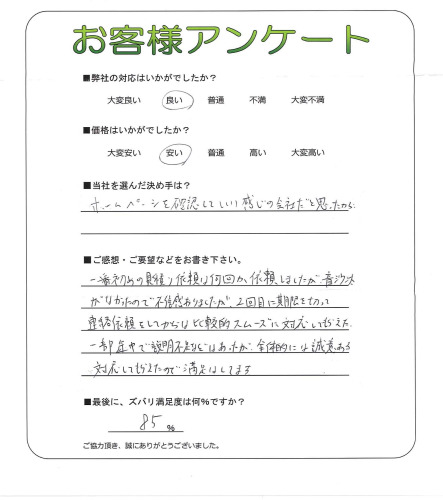 お客様アンケート
■弊社の対応はいかがでしたか?
大変良い 良い 普通 不満 大変不満
■価格はいかがでしたか?
大変安い 安い 普通 高い 大変高い
■当社を選んだ決め手は?
ホームページを確認していい感じの会社だと思ったから
■ご感想・ご要望などをお書き下さい。
一番初めの見積り依頼は何回か依頼しましたが音沙汰
がなかったので不信感ありましたが、2回目に期限を切って
連絡依頼をしてからは比較的スムーズに対応してもらえた
一部途中で説明不足などはあったが、全体的には誠意ある
対応してもらえたので満足はしてます
■最後に、ズバリ満足度は何%ですか?
85%
ご協力頂き、誠にありがとうございました。